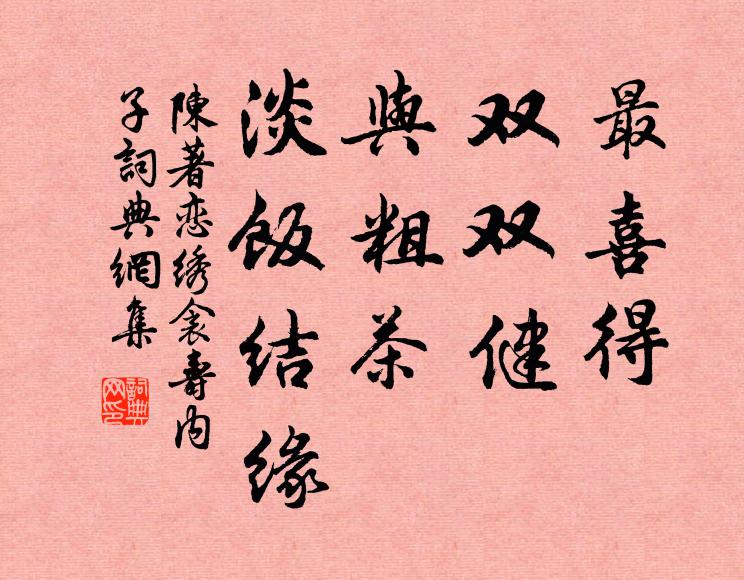 最喜得
双双健
與粗茶
淡飯结缘
陳著恋绣衾寿内
子詞典網集
詞典网印